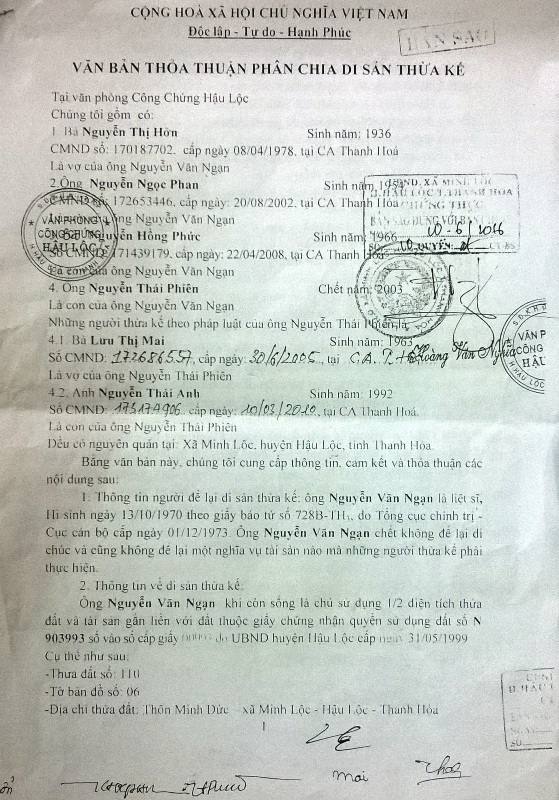 CỘNG HOÀ XÃ HỘI CHỦ NGHĨA VIỆT NAM
Độc lập - Tự do - Hạnh Phúc
BẢN SAO
VĂN BẢN THỎA THUẬN PHÂN CHIA DI SẢN THỪA KẾ
Tại văn phòng Công Chứng Hậu Lộc
Chúng tôi gồm có:
1. Bà Nguyễn Thị Hơn Sinh năm: 1936
CMND số: 170187702. cấp ngày 08/04/1978, tại CA Thanh Hoá
Là vợ của ông Nguyễn Văn Ngạn
2.Ông Nguyễn Ngọc Phan Sinh năm
172653446, cấp ngày: 20/08/2002, tại CA Thanh Hoá
ông Nguyễn Văn Ngạn
Nguyễn Hồng Phúc Sinh năm: 1966
Số CMND: 171439179, cấp ngày: 22/04/2008, tại CA Thanh
của ông Nguyễn Văn Ngạn
4. Ông Nguyễn Thái Phiên Chết năm: 2003
Là con của ông Nguyễn Văn Ngạn
Những người thừa kế theo pháp luật của ông Nguyễn Thái Phiên là
4.1. Bà Lưu Thị Mai Sinh năm: 1963
Số CMND: 172686557, cấp ngày: 30/6/2005, tại CA. T.H
Là vợ của ông Nguyễn Thái Phiên
4.2. Anh Nguyễn Thái Anh Sinh năm: 1992
Số CMND: 173174906. cấp ngày: 10/03/2010, tại CA Thanh Hoá.
Là con của ông Nguyễn Thái Phiên
Đều có nguyên quán tại: Xã Minh Lộc, huyện Hậu Lộc, tỉnh Thanh Hóa.
Bằng văn bản này, chúng tôi cung cấp thông tin, cam kết và thỏa thuận các
nội dung sau:
1. Thông tin người để lại di sản thừa kế: ông Nguyễn Văn Ngạn là liệt sĩ,
Hi sinh ngày 13/10/1970 theo giấy báo tử số 728B-TH1, do Tổng cục chính trị -
Cục cán bộ cấp ngày 01/12/1973. Ông Nguyễn Văn Ngạn chết không để lại di
chúc và cũng không để lại một nghĩa vụ tài sản nào mà những người thừa kế phải
thực hiện.
2. Thông tin về di sản thừa kế:
Ông Nguyễn Văn Ngạn khi còn sống là chủ sử dụng 1/2 diện tích thửa
đất và tài sản gắn liền với đất thuộc giấy chứng nhận quyền sử dụng đất số N
903993 số vào sổ cấp giấy do UBND huyện Hậu Lộc cấp ngày 31/05/1999
Cụ thể như sau:
-Thửa đất số: 110
-Tờ bản đồ số: 06
-Địa chỉ thửa đất: Thôn Minh Đức – xã Minh Lộc - Hậu Lộc - Thanh Hóa
1
VĂN PHÒNG
CÔNG CHỨNG
HẬU LỘC
UBND. XÃ MINH LỘC
H.HẬU LỘC T.THANH HOÁ
CHỨNG THỰC
BẢN SAO ĐÚNG VỚI BẢN CHÍNH
10-6/2016
QUYỂN: CT-BS
Hoàng Văn Nghĩa
VĂN P
CÔNG
HẬU
Mai